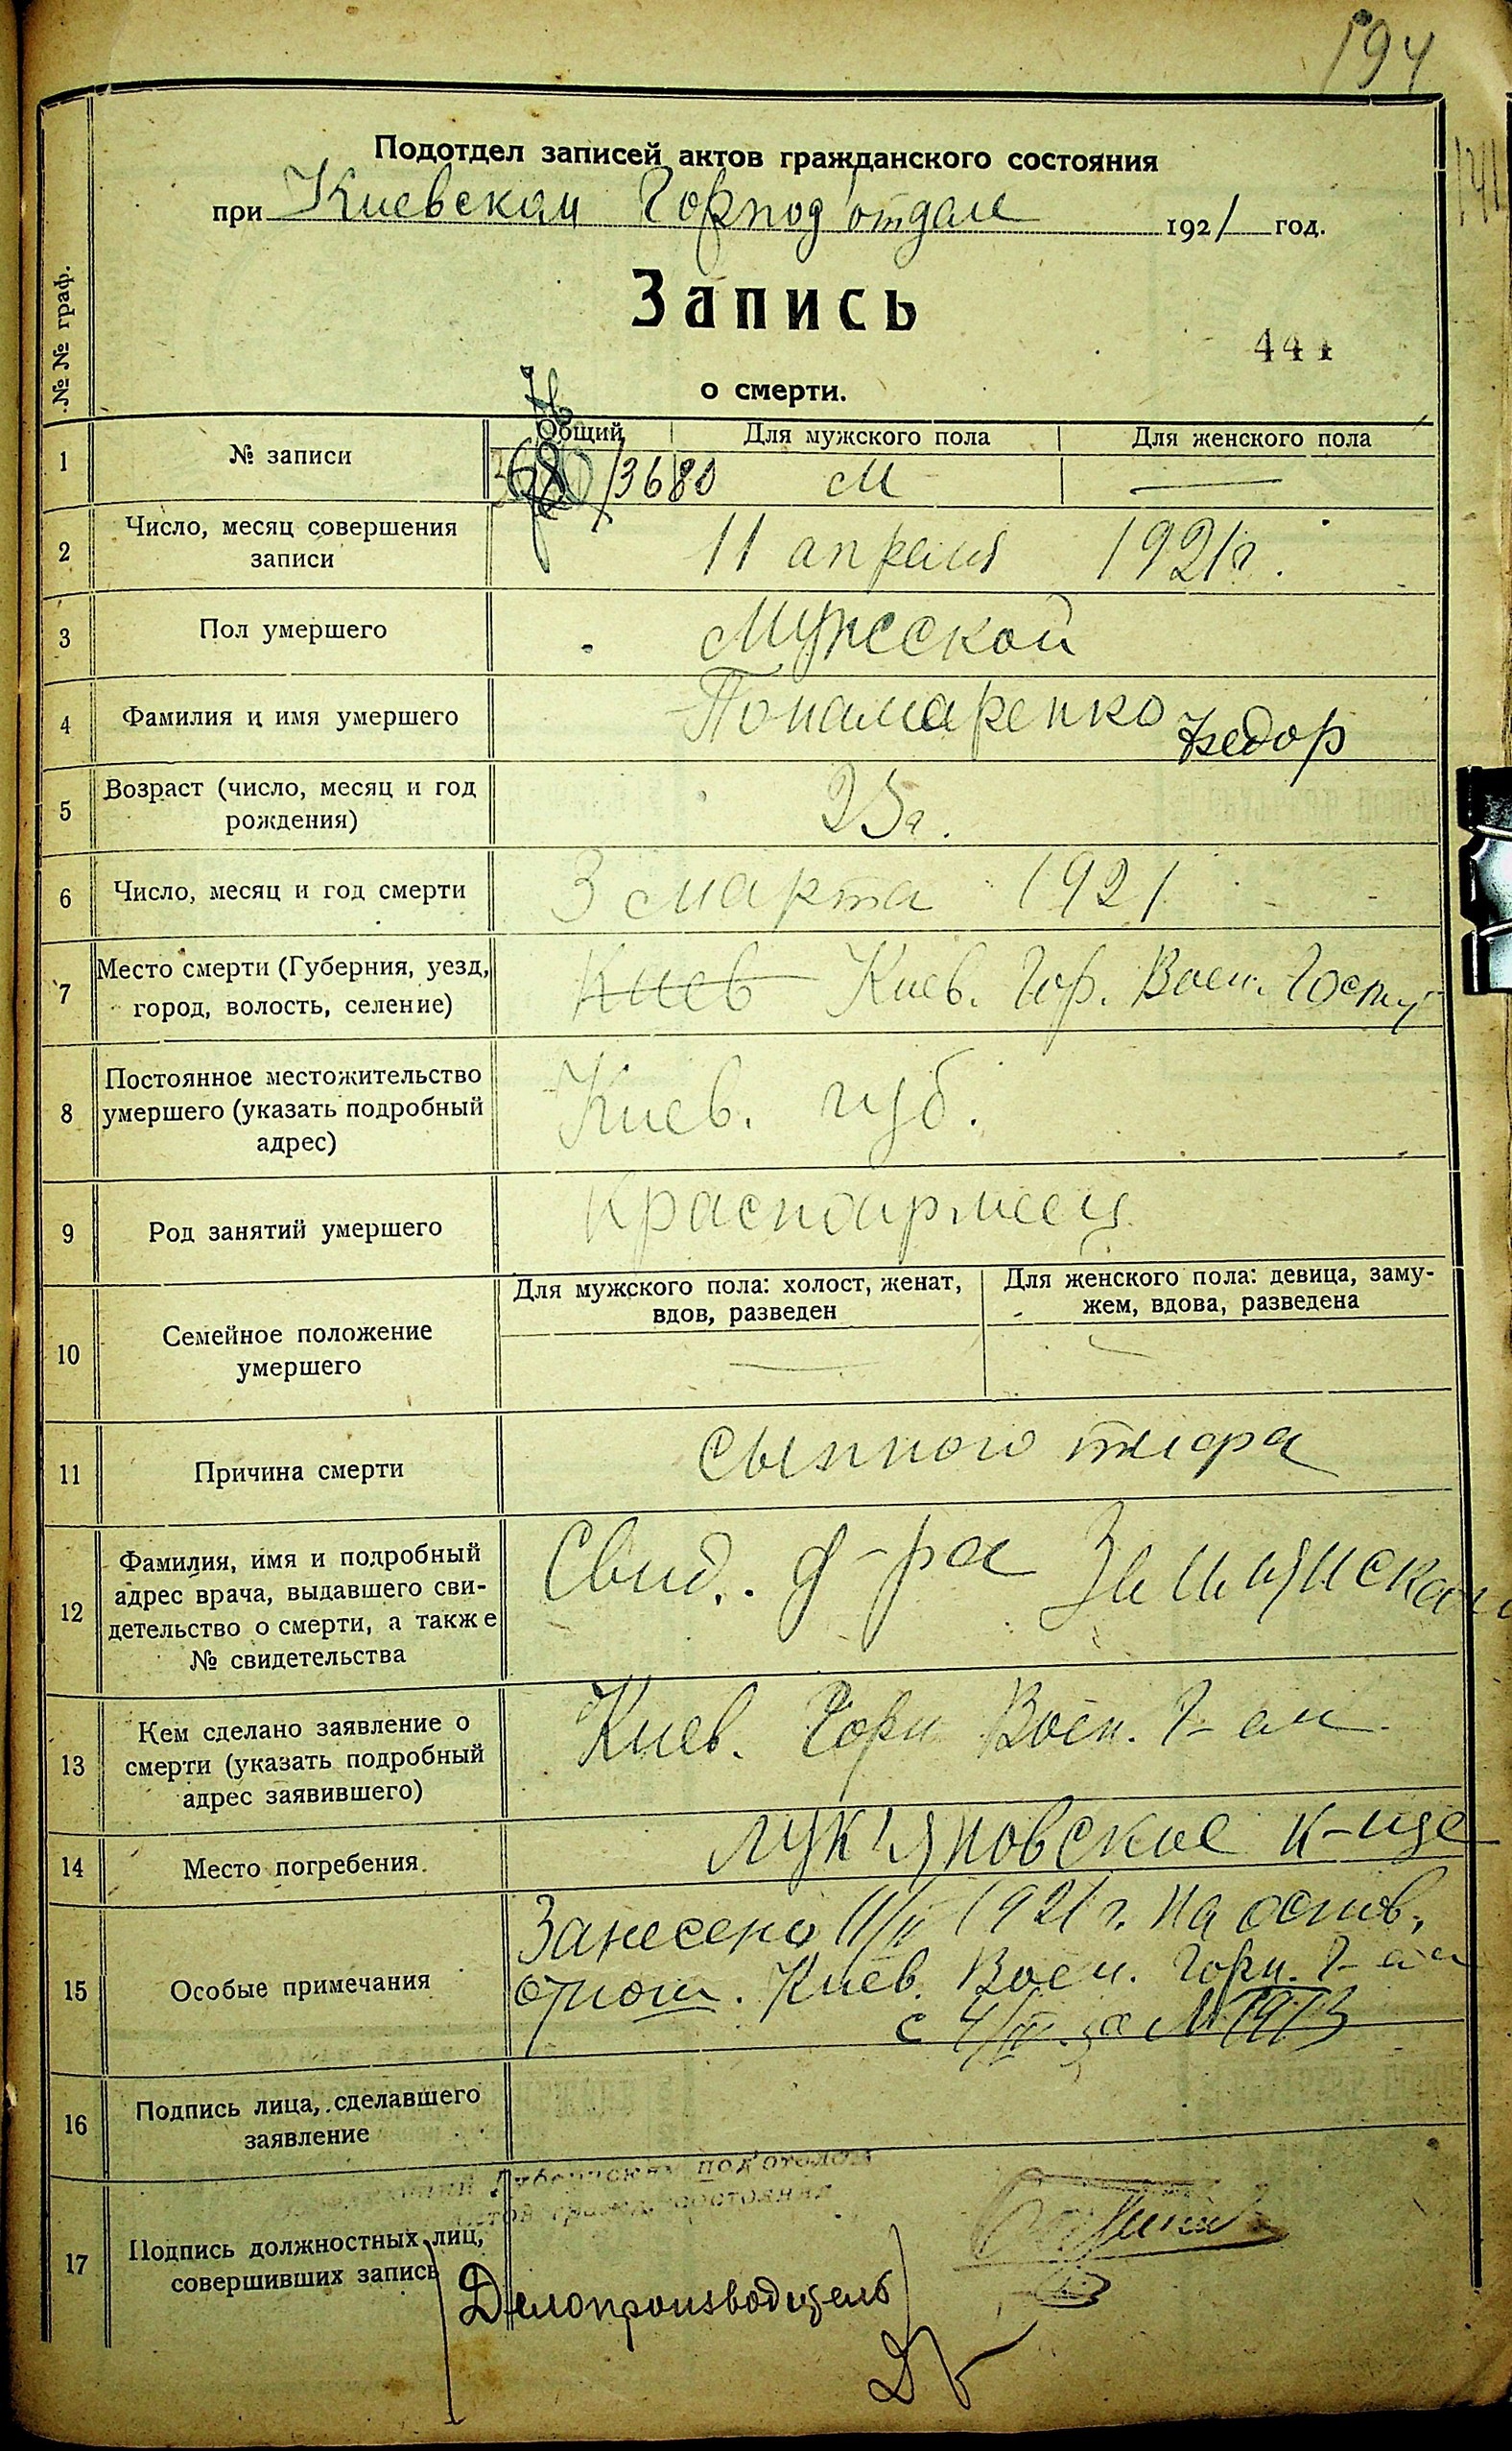 194
Подотдел записей актов гражданского состояния
при Киевском Горпод'отделе 1921 год.
№№ граф.
Запись
444
о смерти.
Общий Для мужского пола Для женского пола
1 № записи 3680 М —
2 Число, месяц совершения записи 11 апреля 1921 г.
3 Пол умершего Мужской
4 Фамилия и имя умершего Понамаренко Федор
5 Возраст (число, месяц и год рождения) 25 л.
6 Число, месяц и год смерти 3 марта 1921
7 Место смерти (Губерния, уезд, город, волость, селение) Киев Киев. Гор. Воен. Госп
8 Постоянное местожительство умершего (указать подробный адрес) Киев. губ.
9 Род занятий умершего Красноармеец
Для мужского пола: холост, женат, вдов, разведен Для женского пола: девица, замужем, вдова, разведена
10 Семейное положение умершего —
11 Причина смерти сыпного тифа
12 Фамилия, имя и подробный адрес врача, выдавшего свидетельство о смерти, а также № свидетельства Свид. д-ра
13 Кем сделано заявление о смерти (указать подробный адрес заявившего) Киев. Горн Воен. Г-ам
14 Место погребения Лук'яновское к-ще
15 Особые примечания Занесено 11/IV 1921 г. на основ.
отнош. Киев. Воен. Горн. Г-ам
с 4/IV за № 1913
16 Подпись лица, сделавшего заявление
Губернским под'отделом
17 Подпись должностных лиц, совершивших запись
Делопроизводитель